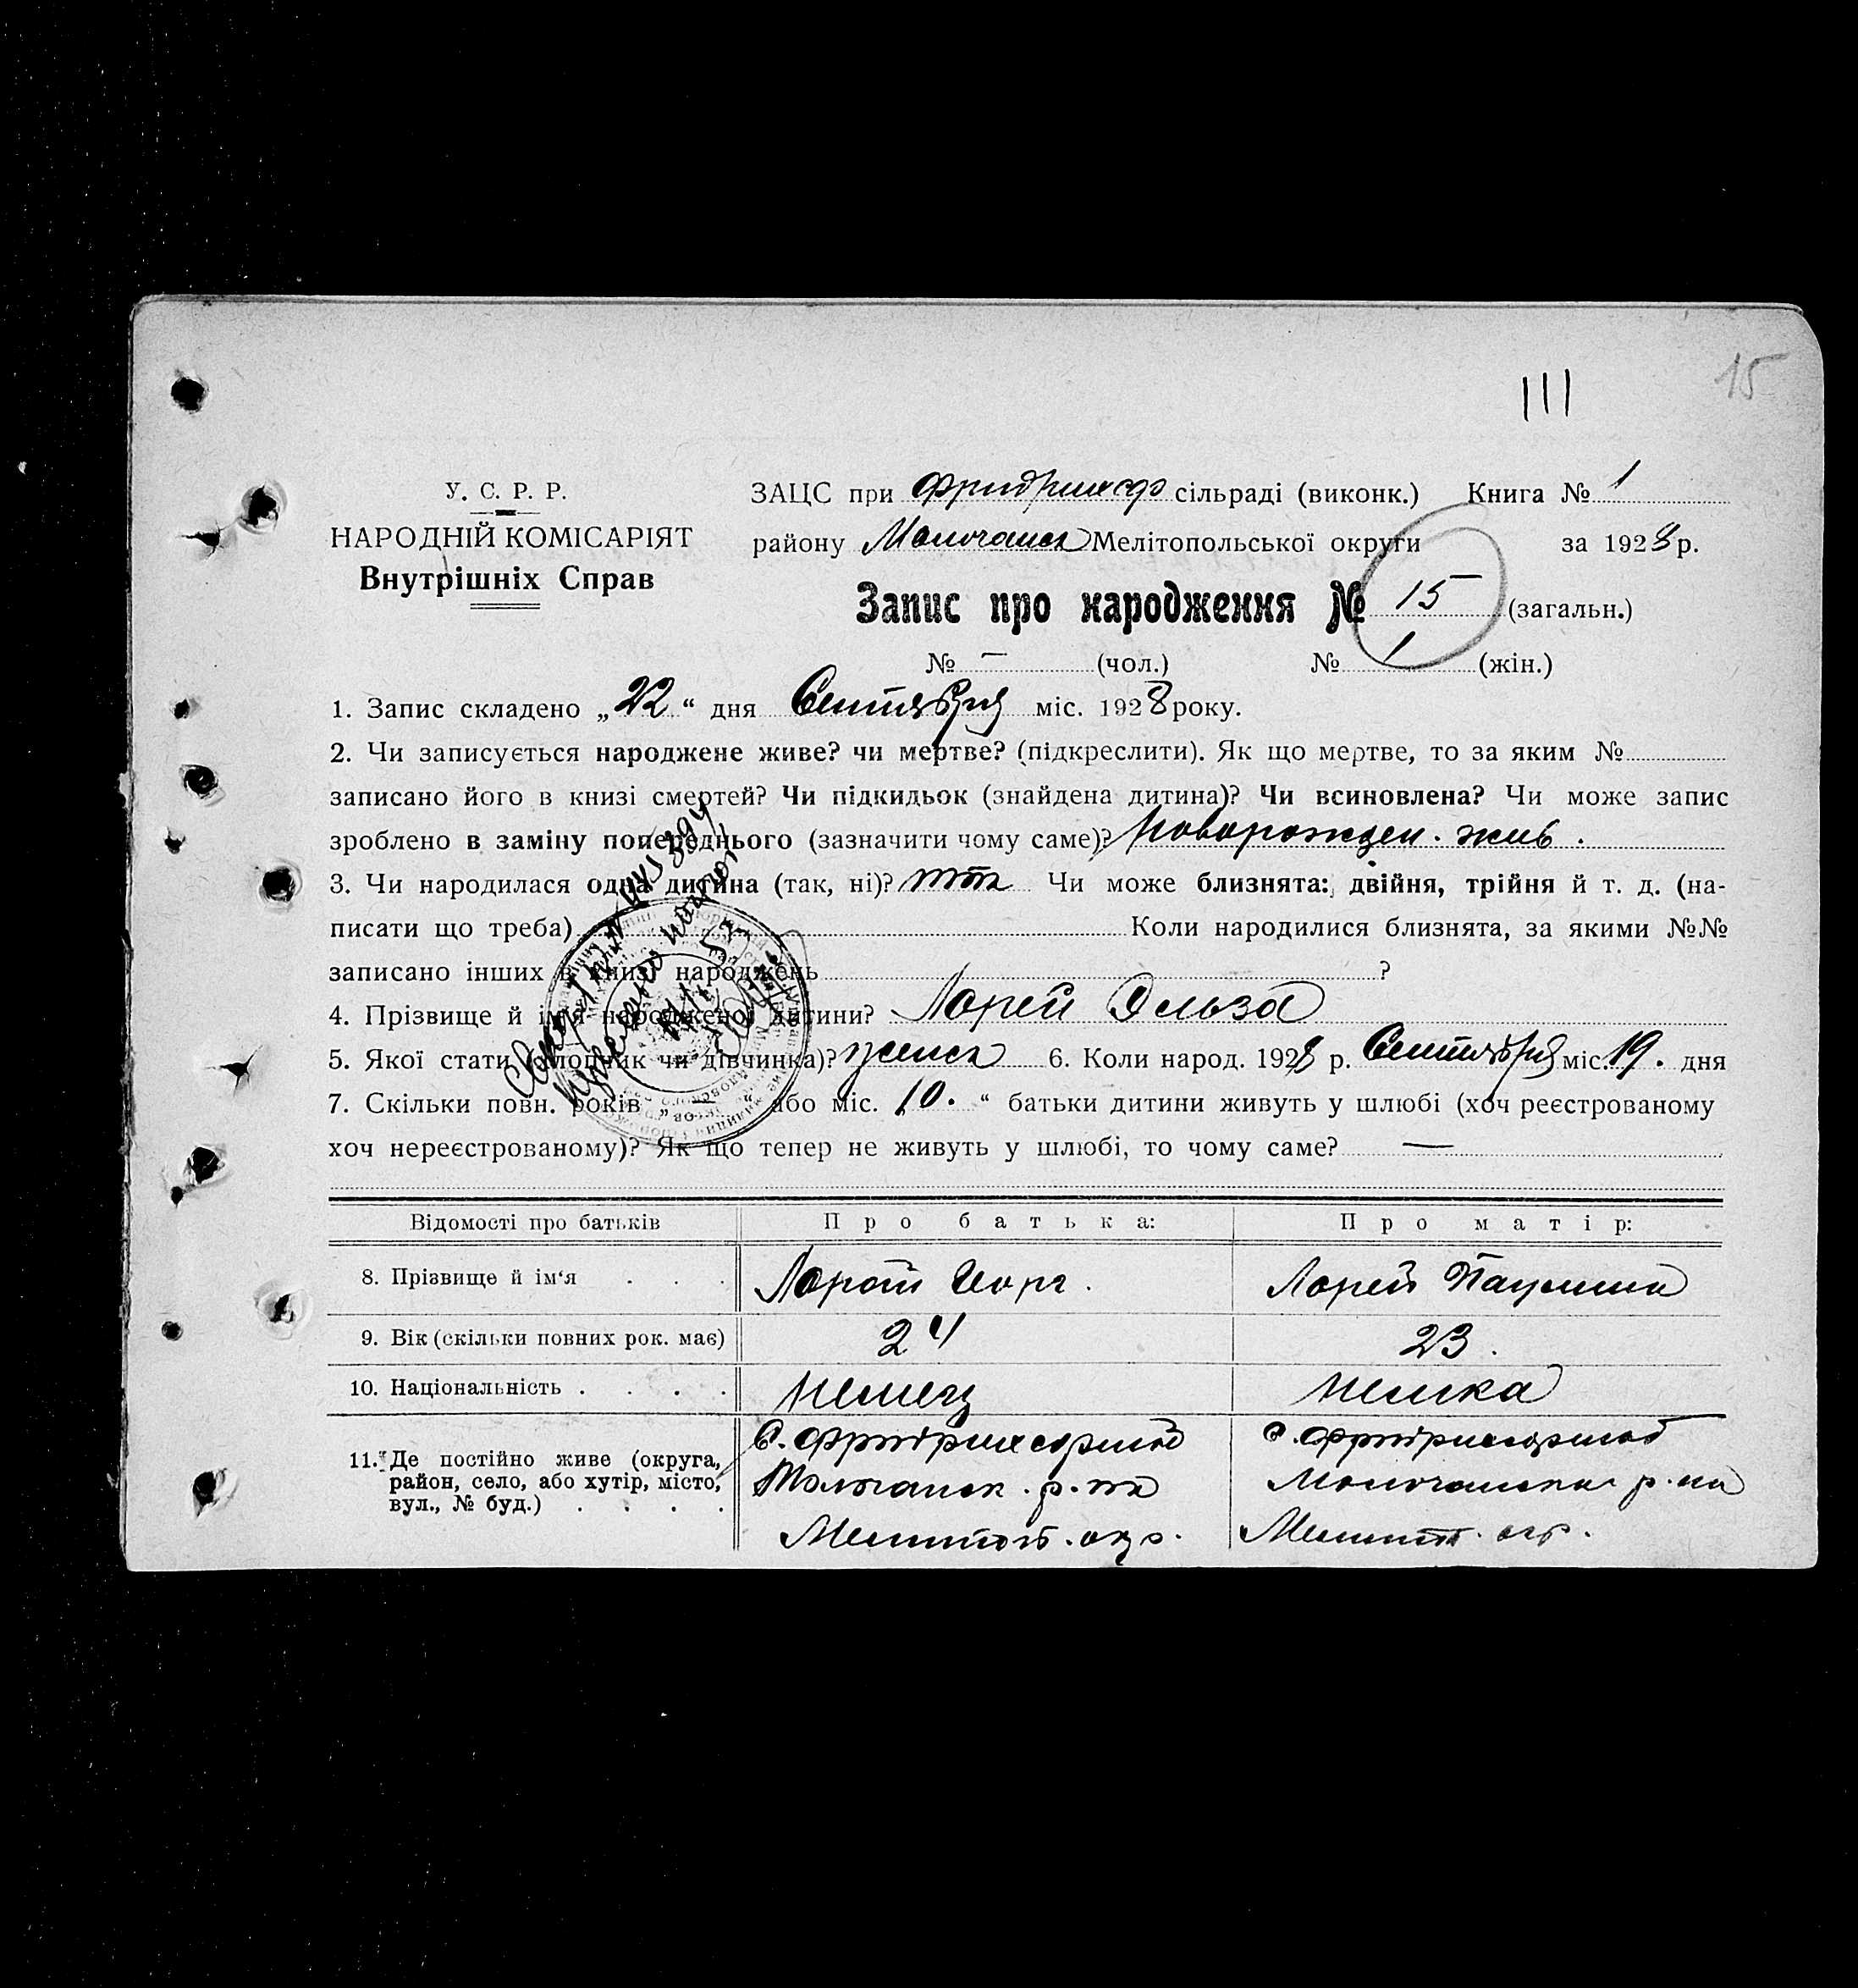 15
III
У. С. Р. Р.
НАРОДНІЙ КОМІСАРІЯТ
Внутрішніх Справ
ЗАЦС при сільраді (виконк.) Книга № 1
району Молочанск Мелітопольської округи за 1928 р.
Запис про народження № 15 (загальн.)
№ — (чол.) № 1 (жін.)
1. Запис складено „22“ дня Сентября міс. 1928 року.
2. Чи записується народжене живе? чи мертве? (підкреслити). Як що мертве, то за яким №
записано його в книзі смертей? Чи підкидьок (знайдена дитина)? Чи всиновлена? Чи може запис
зроблено в заміну попереднього (зазначити чому саме)? Новорожден. жив.
3. Чи народилася одна дитина (так, ні)? Чи може близнята: двійня, трійня й т. д. (на-
писати що треба) Коли народилися близнята, за якими №№
записано інших в книзі народжень ?
4. Прізвище й ім'я народженої дитини? Лорей Эльза
5. Якої статі (хлопчик чи дівчинка)? женск 6. Коли народ. 1928 р. Сентября міс. 19. дня
7. Скільки повн. років „—“ або міс. 10. “ батьки дитини живуть у шлюбі (хоч реєстрованому
хоч нереєстрованому)? Як що тепер не живуть у шлюбі, то чому саме? —
Відомості про батьків Про батька: Про матір:
8. Прізвище й ім'я . . . Лорей Георг. Лорей Паулина
9. Вік (скільки повних рок. має) 24 23.
10. Національність . . . . Немец Немка
11. Де постійно живе (округа, район, село, або хутір, місто, вул., № буд.) . . . .
Молочанск. р-на Молочанск р-на
Мелитоп. окр. Мелитоп. окр.